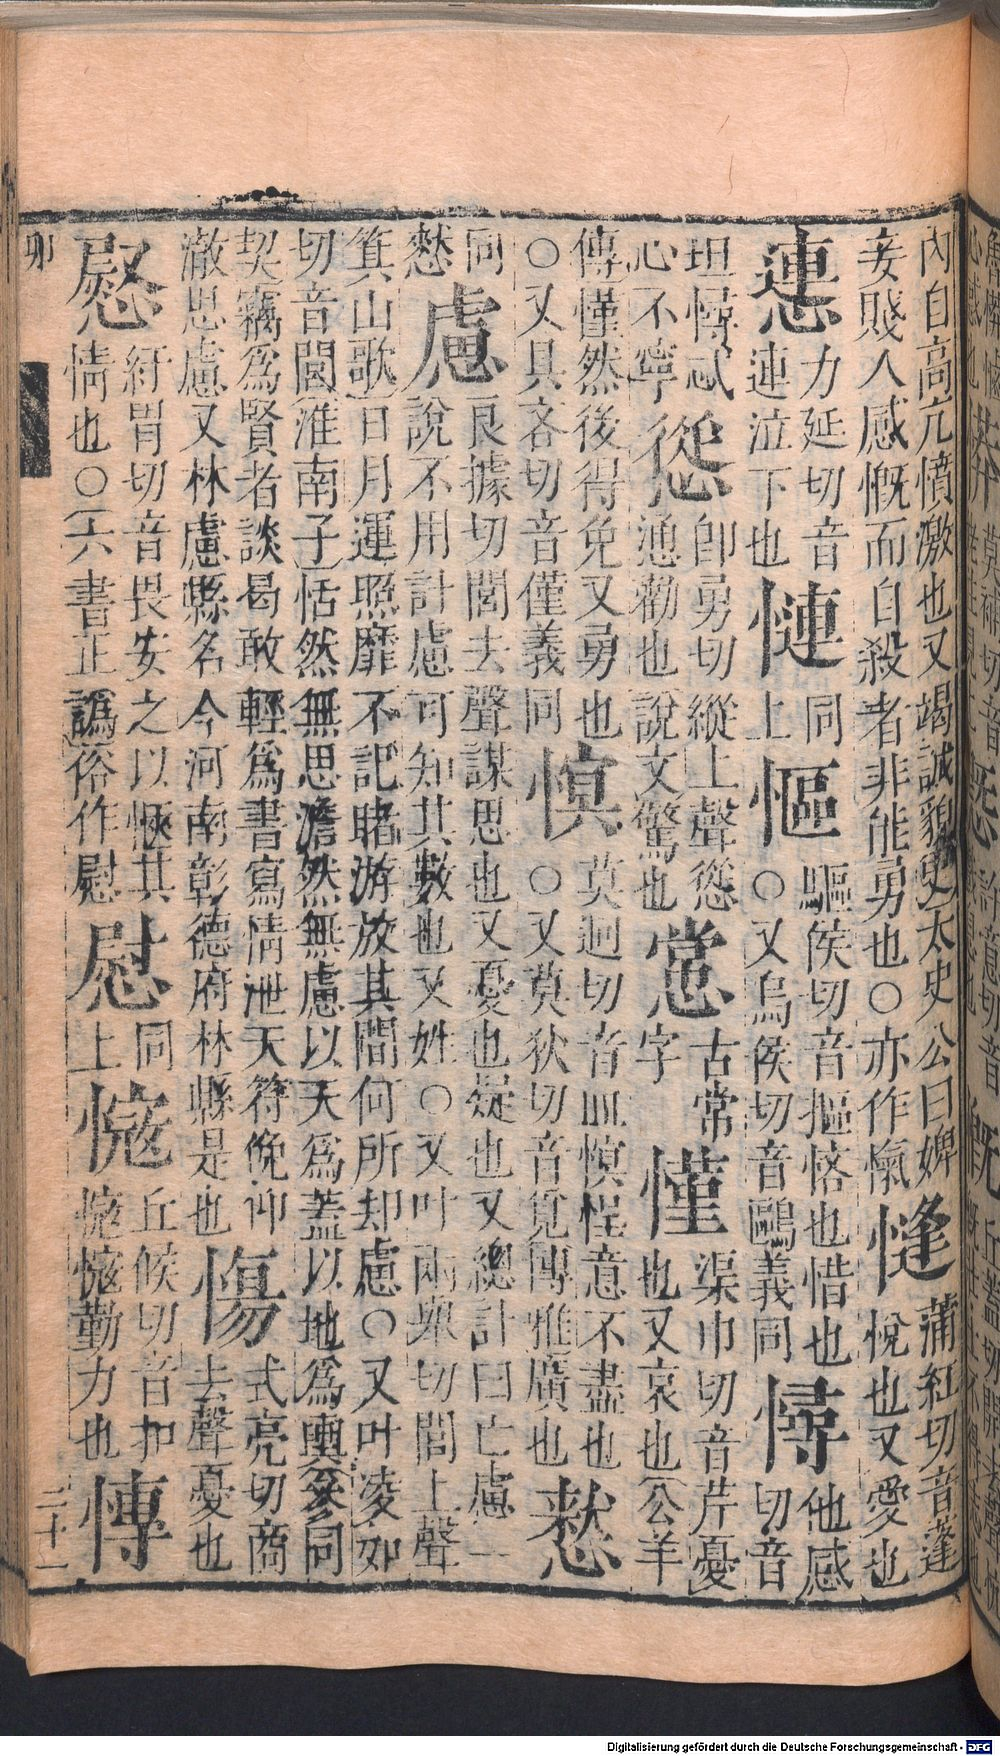 內自高亢憤激也又竭誠貌史太史公曰婢
蒲紅切音蓬
妾賤人感慨而自殺者非能勇也○亦作愾
悅也又愛也
力延切音
連泣下也
慩
同
上
慪
驅侯切音摳悋也惜也
○又烏侯切音鷗義同
他感
切音
坦 忒
心不寧
慫
即勇切縱上聲慫
慂勸也說文驚也
古常
字
慬
渠巾切音芹憂
也又哀也公羊
傳慬然後得免又勇也
○又具吝切音僅義同
慏
莫迥切音皿慏悜意不盡也
○又莫狄切音覓博雅廣也
憖
同
慮
良據切閭去聲謀思也又憂也疑也又總計曰亡慮一
說不用計慮可知其數也又姓○又叶兩舉切閭上聲
箕山歌日月運照靡不記睹游放其間何所却慮○又叶淩如
切音閭淮南子恬然無思澹然無慮以天為蓋以地為輿參同
契竊為賢者談曷敢輕為書寫情泄天符俛仰
澈思慮又林慮縣名今河南彰德府林縣是也
慯
式亮切商
去聲憂也
紆胃切音畏安之以愜其
情也○六書正譌俗作慰
慰
同
上
丘候切音扣
勤力也
慱
卯
二十一
Digitalisierung gefördert durch die Deutsche Forschungsgemeinschaft - DFG